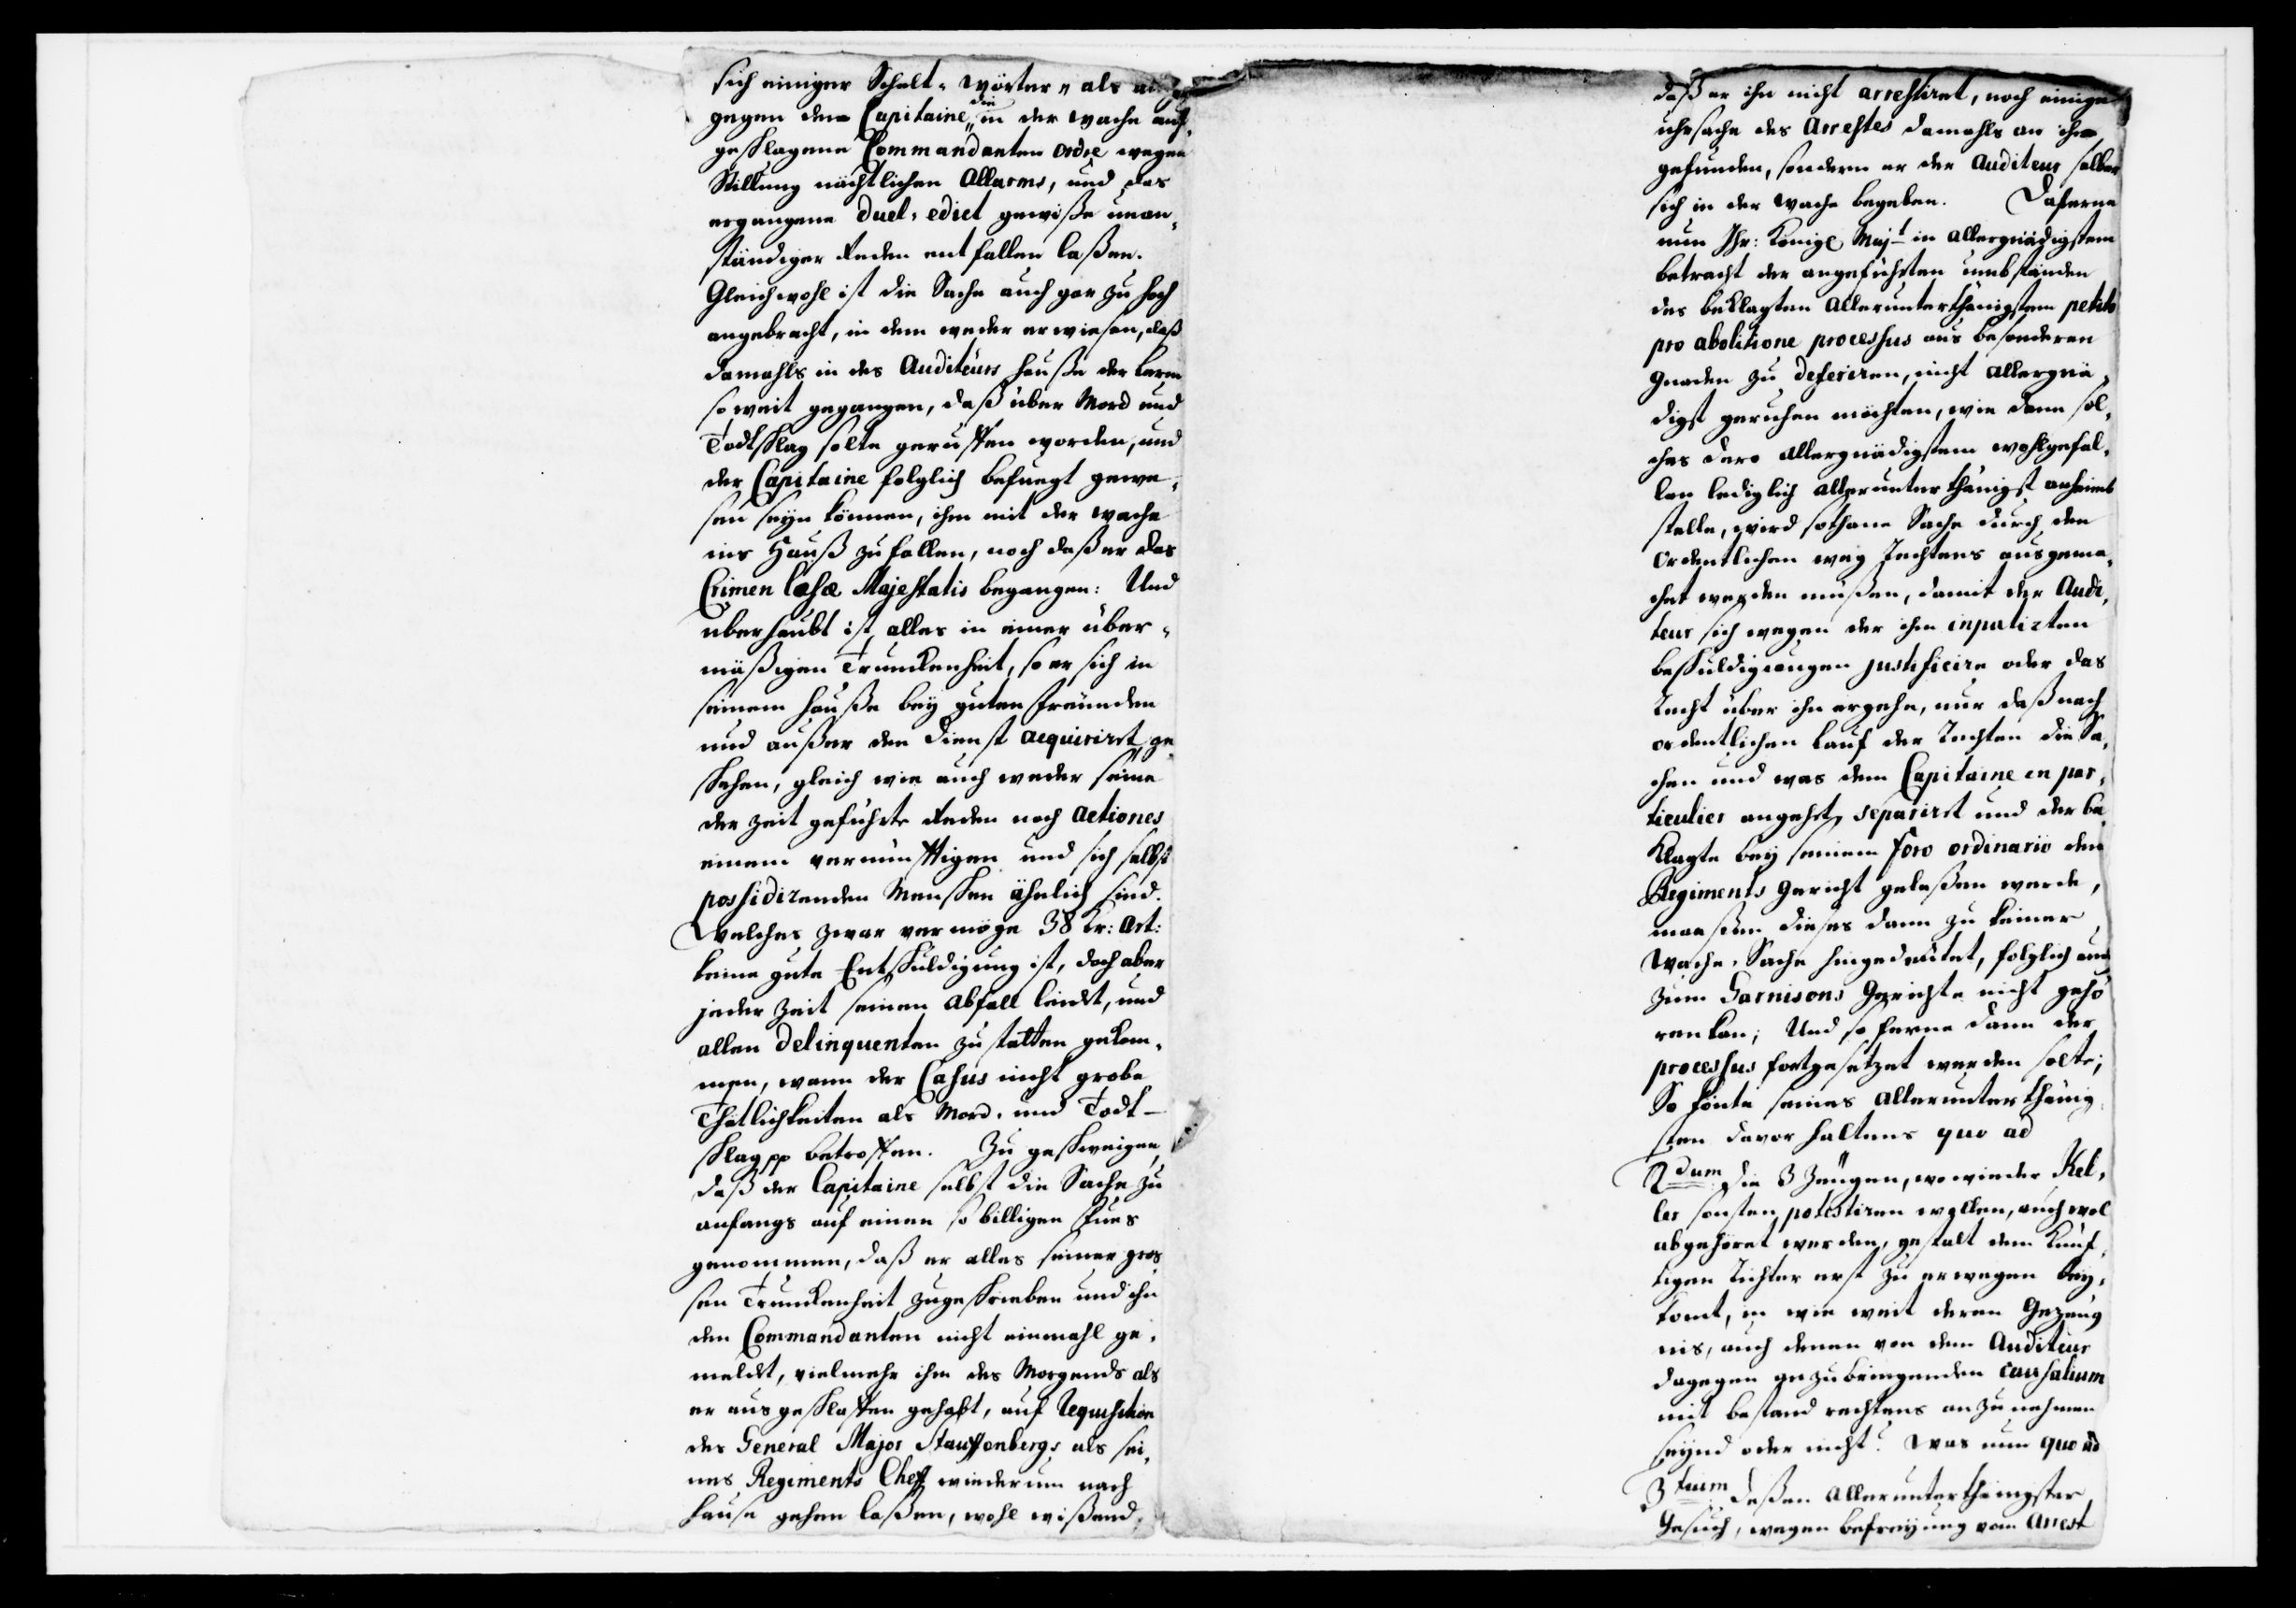 sich einiger Schelt-Wörter, als
gegen dem Capitaine, die in der Wache auf-
geschlagene Commandanten Ordre wegen
Stillung nächtlichen Allarms, und das
ergangene Duel-edict gewiße unan-
ständiger Reden entfallen laßen.
Gleichwohl ist die Sache auch gar zu hoch
angebracht, in dem weder erwiesen, daß
damahls in des Auditeurs Hauße der Lerm
so weit gegangen, daß über Mord und
Todtschlag solte geruffen worden, und
der Capitaine folglich befuegt gewe-
sen seyn können, ihm mit der Wache
ins Hauß zu fallen, noch daß er das
Crimen læsæ Majestatis begangen: Und
überhaubt ist alles in einer über-
mäßigen Trunckenheit, so er sich in
seinem Hauße bey guten Freunden
und außer den Dienst acquiriret, ge-
schehen, gleich wie auch weder seine
der Zeit geführte Reden noch actiones
einem vernünfftigen und sich selbst
possidirenden Menschen ähnlich sind.
Welches zwar vermöge 38 Kr: Art:
keine gute Entschuldigung ist, doch aber
jeder Zeit seinen Abfall leidet, und
allen Delinquenten zu statten gekom-
men, wann der Casus nicht grobe
Thätlichkeiten als Mord- und Todt-
schlag pp betroffen. Zu geschweigen,
daß der Capitaine selbst die Sache zu
anfangs auf einen so billigen Fues
genommen, daß er alles seiner gros
sen Trunckenheit zugeschrieben und ihn
den Commandanten nicht einmahl ge-
meldet, vielmehr ihm des Morgends als
er ausgeschlaffen gehabt, auf Requisition
des General Major Stauffenbergs als sei-
nes Regiments Cheff wiederum nach
Hause gehen laßen, wohl wißend,
daß er ihn nicht arrestiret, noch einige
uhrsache des Arrestes damahls an ihm
gefunden, sondern er der Auditeur selber
sich in der Wache begeben. Daferne
nun Ihr: Königl Majt in allergnädigstem
betracht der angeführten umbständen
des beklagten allerunterthänigstem petito
pro abolitione processus aus besonderen
Gnaden zu deferiren, nicht allergnä-
digst geruhen möchten, wie dann sol-
ches dero allergnädigstem wohlgefal-
len lediglich allerunterthänigst anheimb
stelle, wird sothane Sache durch den
Ordentlichen weg Rechtens ausgema-
chet werden müßen, damit der Audi-
teur sich wegen der ihm inputirten
beschuldigungen justificire oder das
Recht über ihn ergehe, nur daß nach
ordentlichen Lauf der Rechten die Sa-
chen und was dem Capitaine en par-
ticulier angehet, separiret und der be-
klagte bey seinem Foro ordinario dem
Regiments Gericht gelaßen werde,
maaßen dieses dann zu keiner
Wache-Sache hingedeutet, folglich auch
zum Garnisons Gerichte nicht gehö
ren kan; Und so ferne dann der
processus fortgesetzet werden solte;
So könte seines allerunterthänig-
sten davor haltens quo ad
2dum die 3 Zeugen, wo wieder Kel-
ler sonsten potestiren wollen, auch wol
abgehöret werden, gestalt dem künf-
tigen Richter erst zu erwegen bey-
komt, in wie weit deren Gezeug
nis, auch denen von dem Auditeur
dagegen zu bringenden causalium
mit bestand rechtens anzunehmen
seynd oder nicht? Was nun quo ad
3tium deßen allerunterthänigster
Gesuch, wegen befreyung vom Arrest